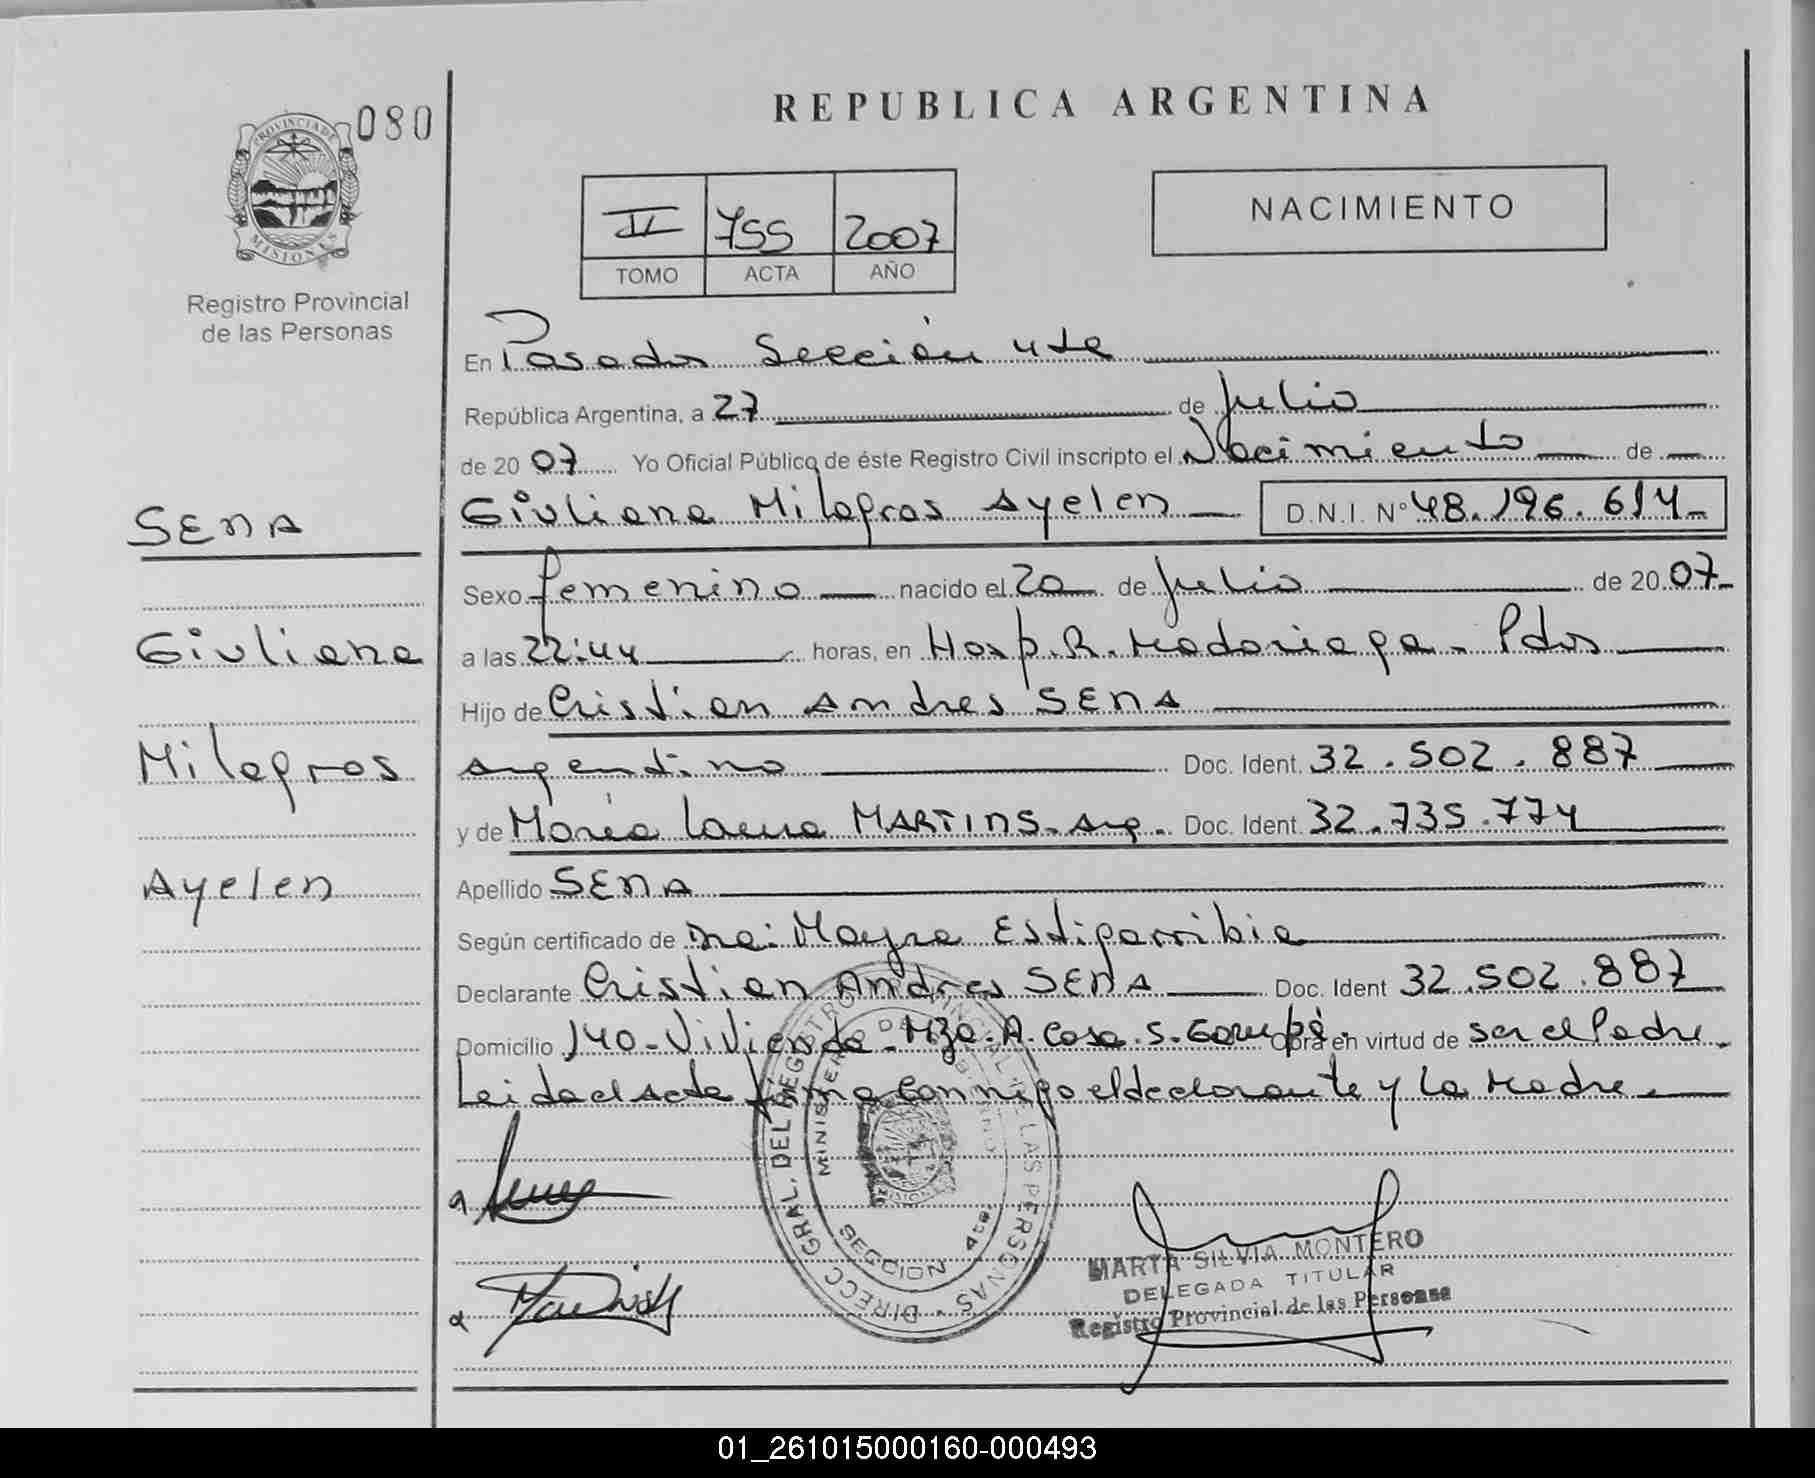 080
PROVINCIA DE
MISIONES
Registro Provincial
de las Personas
REPUBLICA ARGENTINA
II 755 2007
TOMO ACTA AÑO
NACIMIENTO
En Posadas Sección 4ta
República Argentina, a 27 de Julio
de 2007 Yo Oficial Público de éste Registro Civil inscripto el Nacimiento de
Giuliana Milagros Ayelen D.N.I. Nº 48.196.614
Sexo femenino nacido el 20 de Julio de 2007
a las 22:44 horas, en Hosp. R. Madariaga - Pdas
Hijo de Cristian Andres SENA
argentino Doc. Ident. 32.502.887
y de María Laura MARTINS - arg. Doc. Ident. 32.735.774
Apellido SENA
Según certificado de Dra: Mayra Estigarribia
Declarante Cristian Andres SENA Doc. Ident 32.502.887
Domicilio 140 - Vivienda - Mza. A. Casa. 5. Garupá. Obra en virtud de ser el Padre.
Leida el Acta firma conmigo el declarante y la Madre.
SENA
Giuliana
Milagros
Ayelen
DIRECC GRAL. DEL REGISTRO PROVINCIAL DE LAS PERSONAS
MINISTERIO DE GOBIERNO
SECCION 4ta.
MARTA SILVIA MONTERO
DELEGADA TITULAR
Registro Provincial de las Personas
01_261015000160-000493